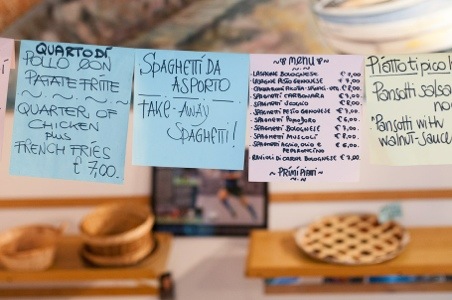 QUARTO DI
POLLO CON
PATATE FRITTE
QUARTER OF
CHICKEN
PLUS
FRENCH FRIES
€ 7,00.
SPAGHETTI DA
ASPORTO
TAKE-AWAY
SPAGHETTI!
MENU
LASAGNE BOLOGNESE
LASAGNE PESTO GENOVESE
SPAGHETTI CARBONARA
SPAGHETTI SCOGLIO
SPAGHETTI PESTO GENOVESE
SPAGHETTI POMODORO € 6,00
SPAGHETTI BOLOGNESE € 7,00
SPAGHETTI MUSCOLI € 8,00
SPAGHETTI AGLIO, OLIO E € 6,00
PEPERONCINO
RAVIOLI DI CARNE BOLOGNESE € 7,00
~ PRIMI PIATTI ~
Piatto tipico
Pansotti salsa
no
"Pansotti with
walnut-sauce